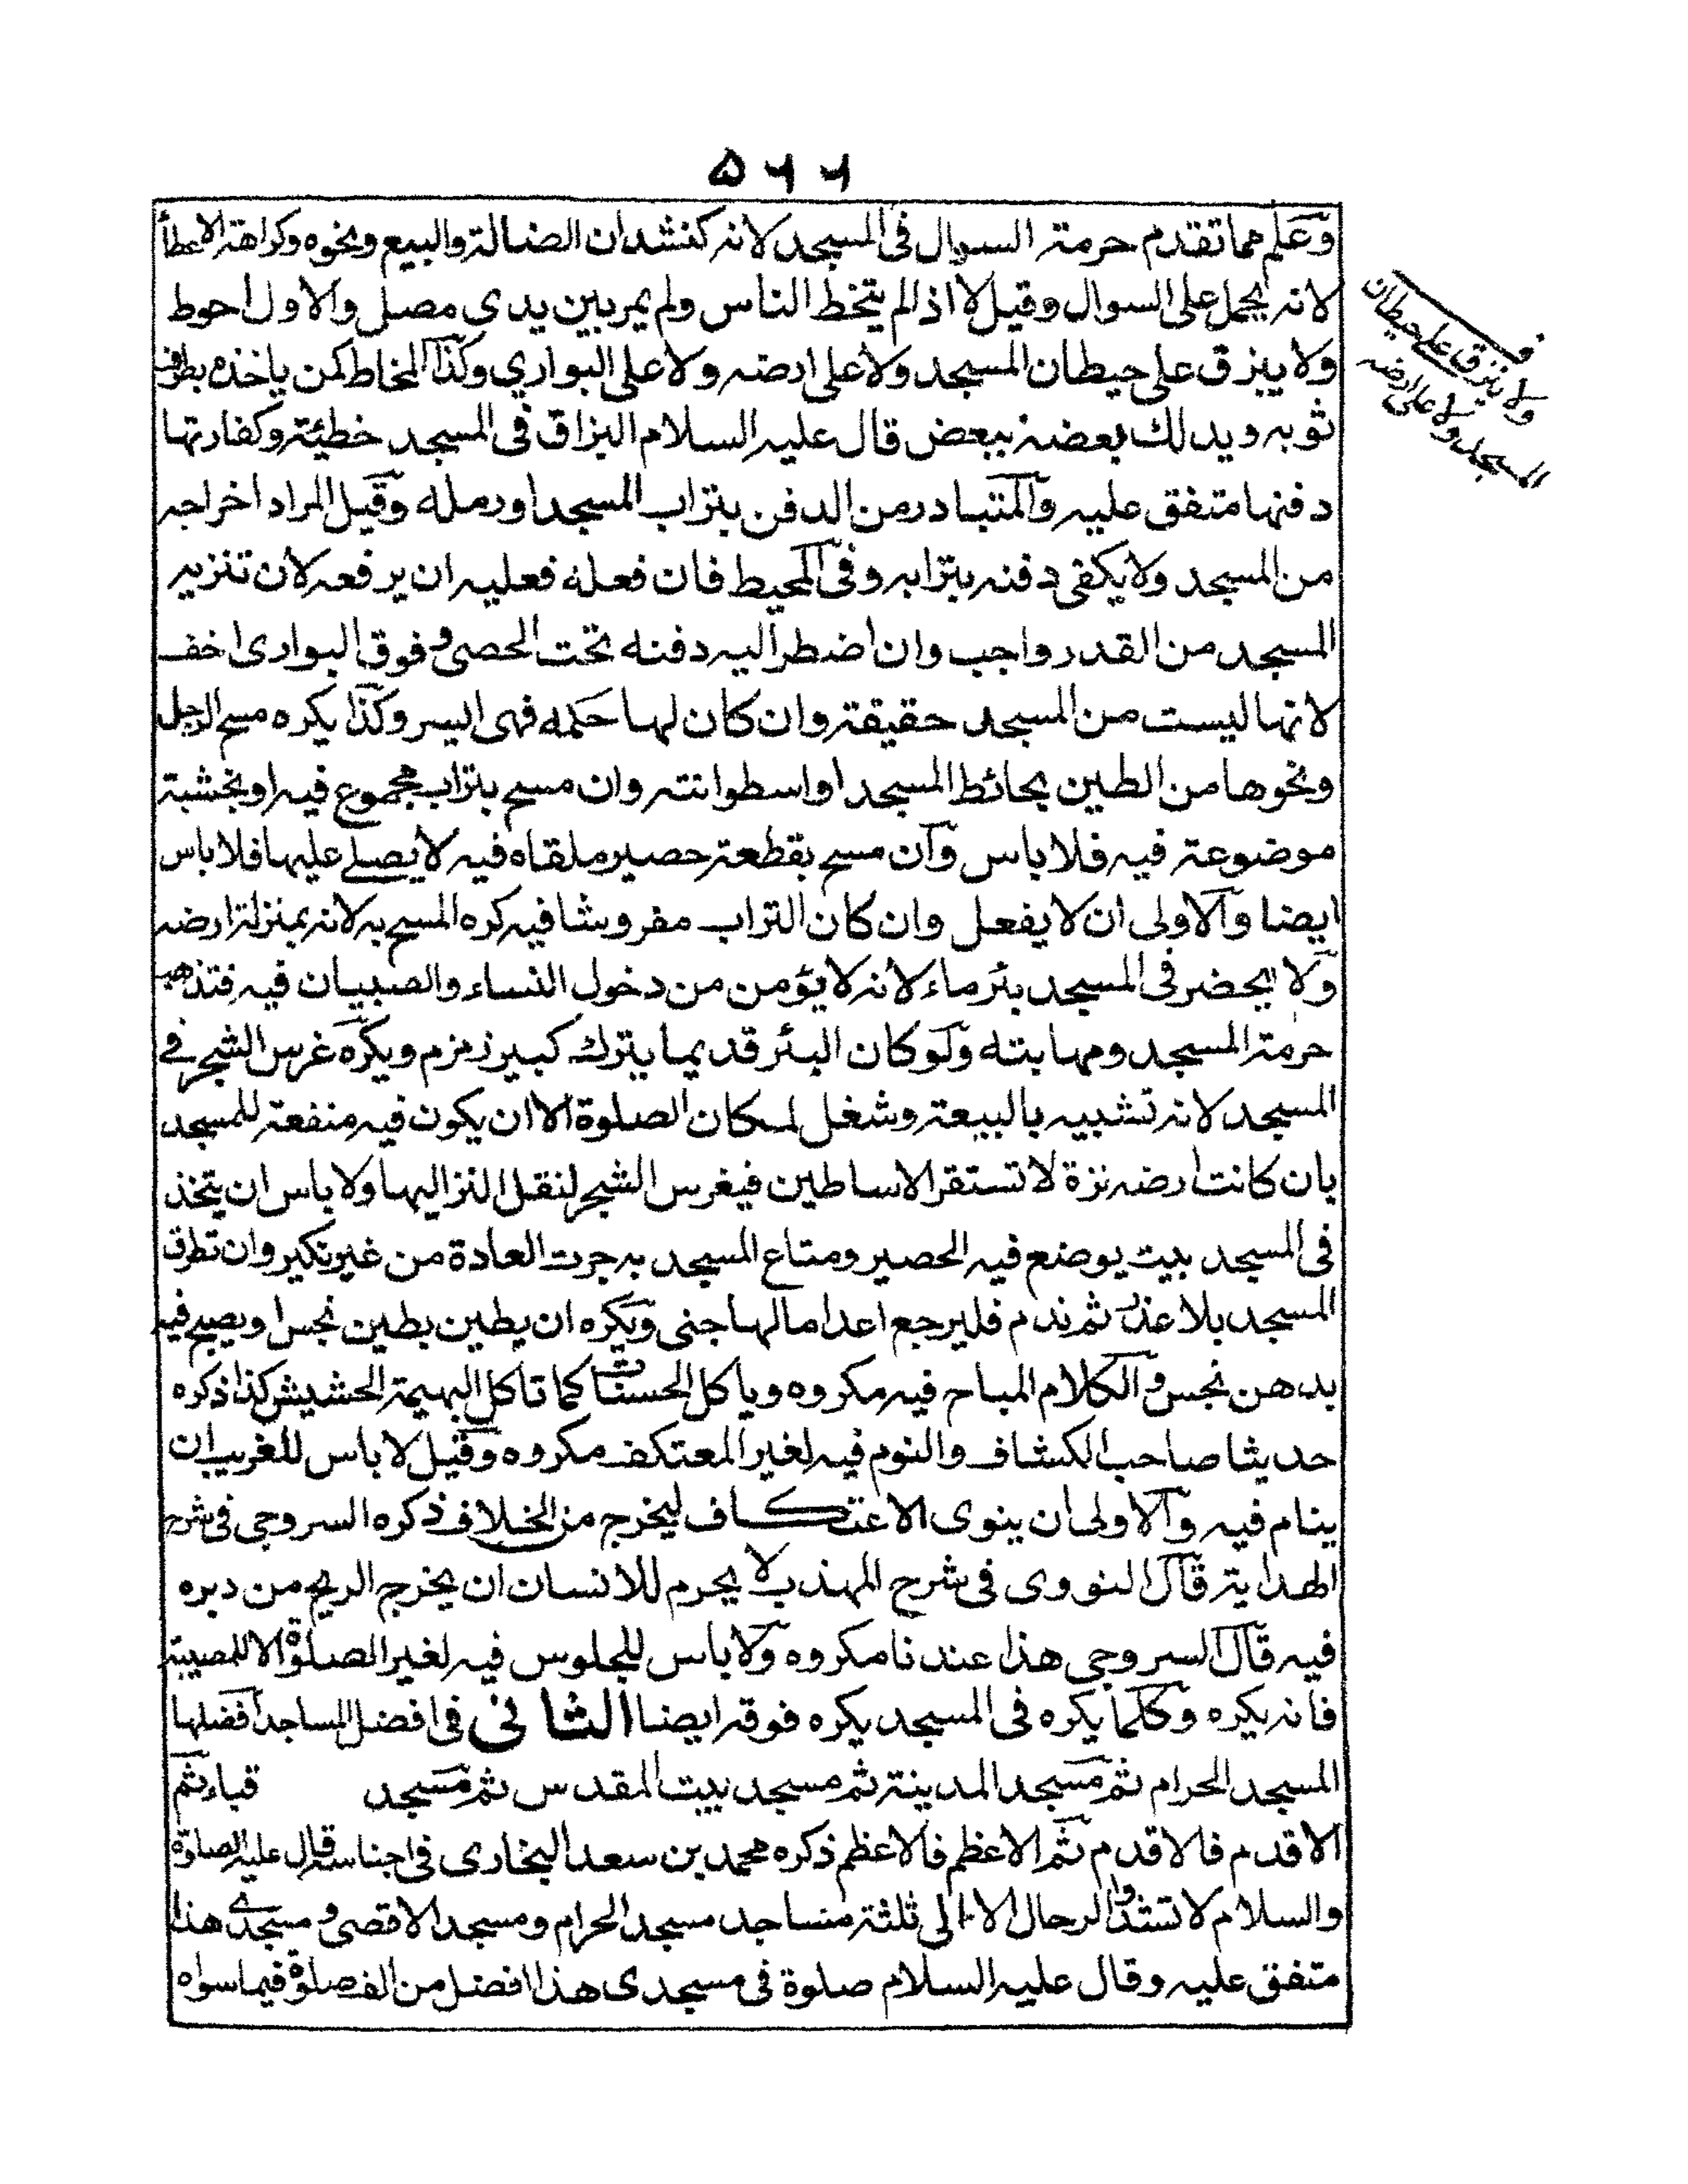 ٥٦٦
وعلم مما تقدم حرمة السوال فى المسجد لانه كنشدان الضالة والبيع ونحوه وكراهة الاعطأ
لانه يحمل على السوال وقيل لا اذا لم يتخط الناس ولم يمر بين يدى مصل والاول احوط
ولا يبزق على حيطان المسجد ولا على ارضه ولا على البواري وكذا المخاط لكن ياخذه بطرف
ثوبه ويدلك بعضه ببعض قال عليه السلام البزاق فى المسجد خطيئة وكفارتها
دفنها متفق عليه والمتبادر من الدفن بتراب المسجد او رمله وقيل المراد اخراجه
من المسجد ولا يكفى دفنه بترابه وفى المحيط فان فعله فعليه ان يرفعه لان تنزيه
المسجد من القدر واجب وان اضطر اليه دفنه تحت الحصى وفوق البوارى اخف
لانها ليست من المسجد حقيقة وان كان لها حكمه فهى ايسر وكذا يكره مسح الرجل
ونحوها من الطين بحائط المسجد او اسطوانته وان مسح بتراب مجموع فيه او بخشبة
موضوعة فيه فلا باس وان مسح بقطعة حصير ملقاه فيه لا يصلے عليها فلا باس
ايضا والاولى ان لا يفعل وان كان التراب مفروشا فيه كره المسح به لانه بمنزلة ارضه
ولا يحضر فى المسجد بئر ماء لانه لا يؤمن من دخول النساء والصبيان فيه فتذهب
حرمة المسجد ومهابته ولو كان البئر قديما يترك كبير زمزم ويكره غرس الشجر فے
المسجد لانه تشبيه بالبيعة وشغل لمكان الصلوة الا ان يكون فيه منفعة للمسجد
بان كانت ارضه نزة لا تستقر الاساطين فيغرس الشجر لنقل النز اليها ولا باس ان يتخذ
فى المسجد بيت يوضع فيه الحصير ومتاع المسجد به جرت العادة من غير نكير وان تطرق
المسجد بلا عذر ثم ندم فليرجع اعداما لها جنى ويكره ان يطين بطين نجس او يصبح فيه
بدهن نجس والكلام المباح فيه مكروه وياكل الحسنات كما تاكل البهيمة الحشيش كذا ذكره
حديثا صاحب الكشاف والنوم فيه لغير المعتكف مكروه وقيل لا باس للغريب ان
ينام فيه والاولى ان ينوى الاعتكاف ليخرج من الخلاف ذكره السروجى فى شرح
الهداية قال النووى فى شرح المهذب لا يحرم للانسان ان يخرج الريح من دبره
فيه قال السروجى هذا عندنا مكروه ولا باس للجلوس فيه لغير الصلوة الا للمصيبة
فانه يكره وكلما يكره فى المسجد يكره فوقه ايضا الثانى فى افضل المساجد افضلها
المسجد الحرام ثم مسجد المدينة ثم مسجد بيت المقدس ثم مسجد قباء ثم
الاقدم فالاقدم ثم الاعظم فالاعظم ذكره محمد بن سعد البخارى فى اجناسه قال عليه الصلوة
والسلام لا تشدوا الرحال الا الى ثلثة مساجد مسجد الحرام ومسجد الاقصى ومسجدے هذا
متفق عليه وقال عليه السلام صلوة فى مسجدى هذا افضل من الف صلوة فيما سواه
ف
ولا يبزق على حيطان
المسجد ولا على ارضه